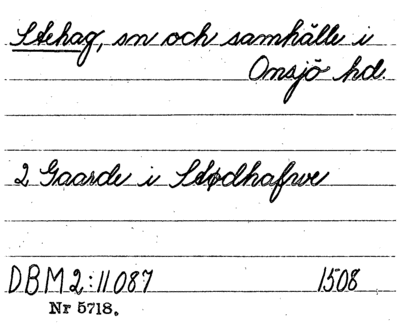 Stehag, sn och samhälle i
Onsjö hd.
2 Gaarde i Stødhafwe
DBM 2:11087 1508
Nr 5718.